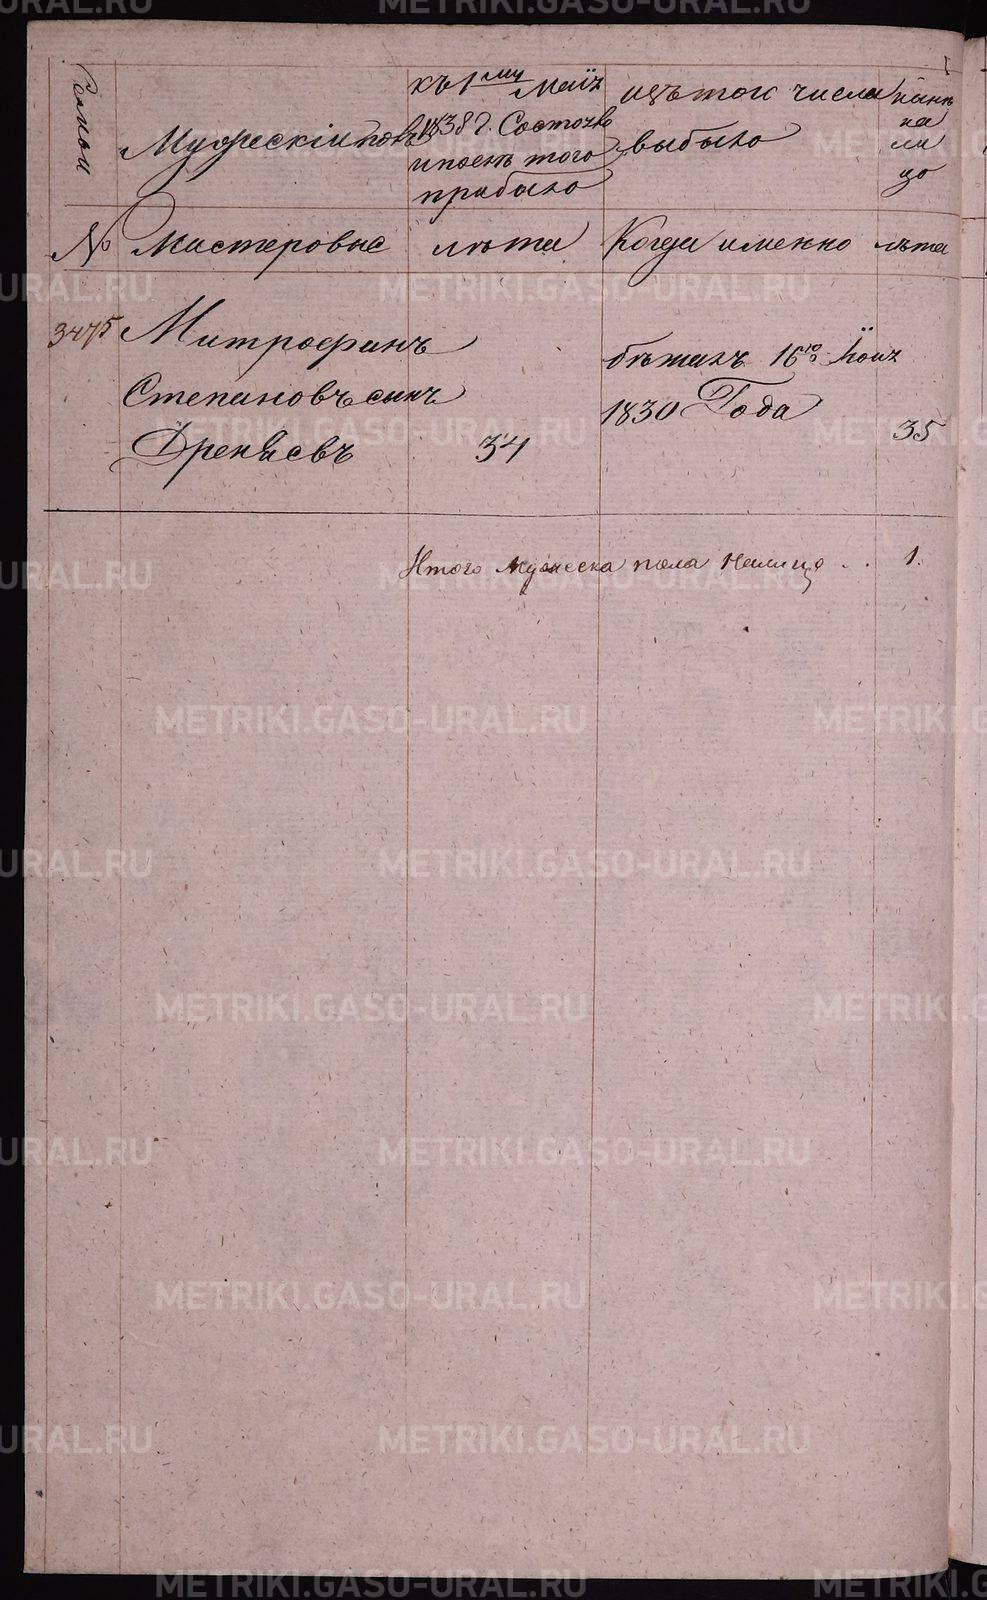 Семьи
Мужескій полъ
къ 1му Маія
1838 г. Состояло
и послѣ того
прибыло
изъ того числа
выбыло
нынѣ
на
ли
цо
№ Мастеровые лѣта Когда именно лѣта
3475 Митрофанъ
Степановъ сынъ
34
бѣжалъ 16го Іюня
1830 Года
35
Итого Мужеска пола Налицо . . 1.
METRIKI.GASO-URAL.RU